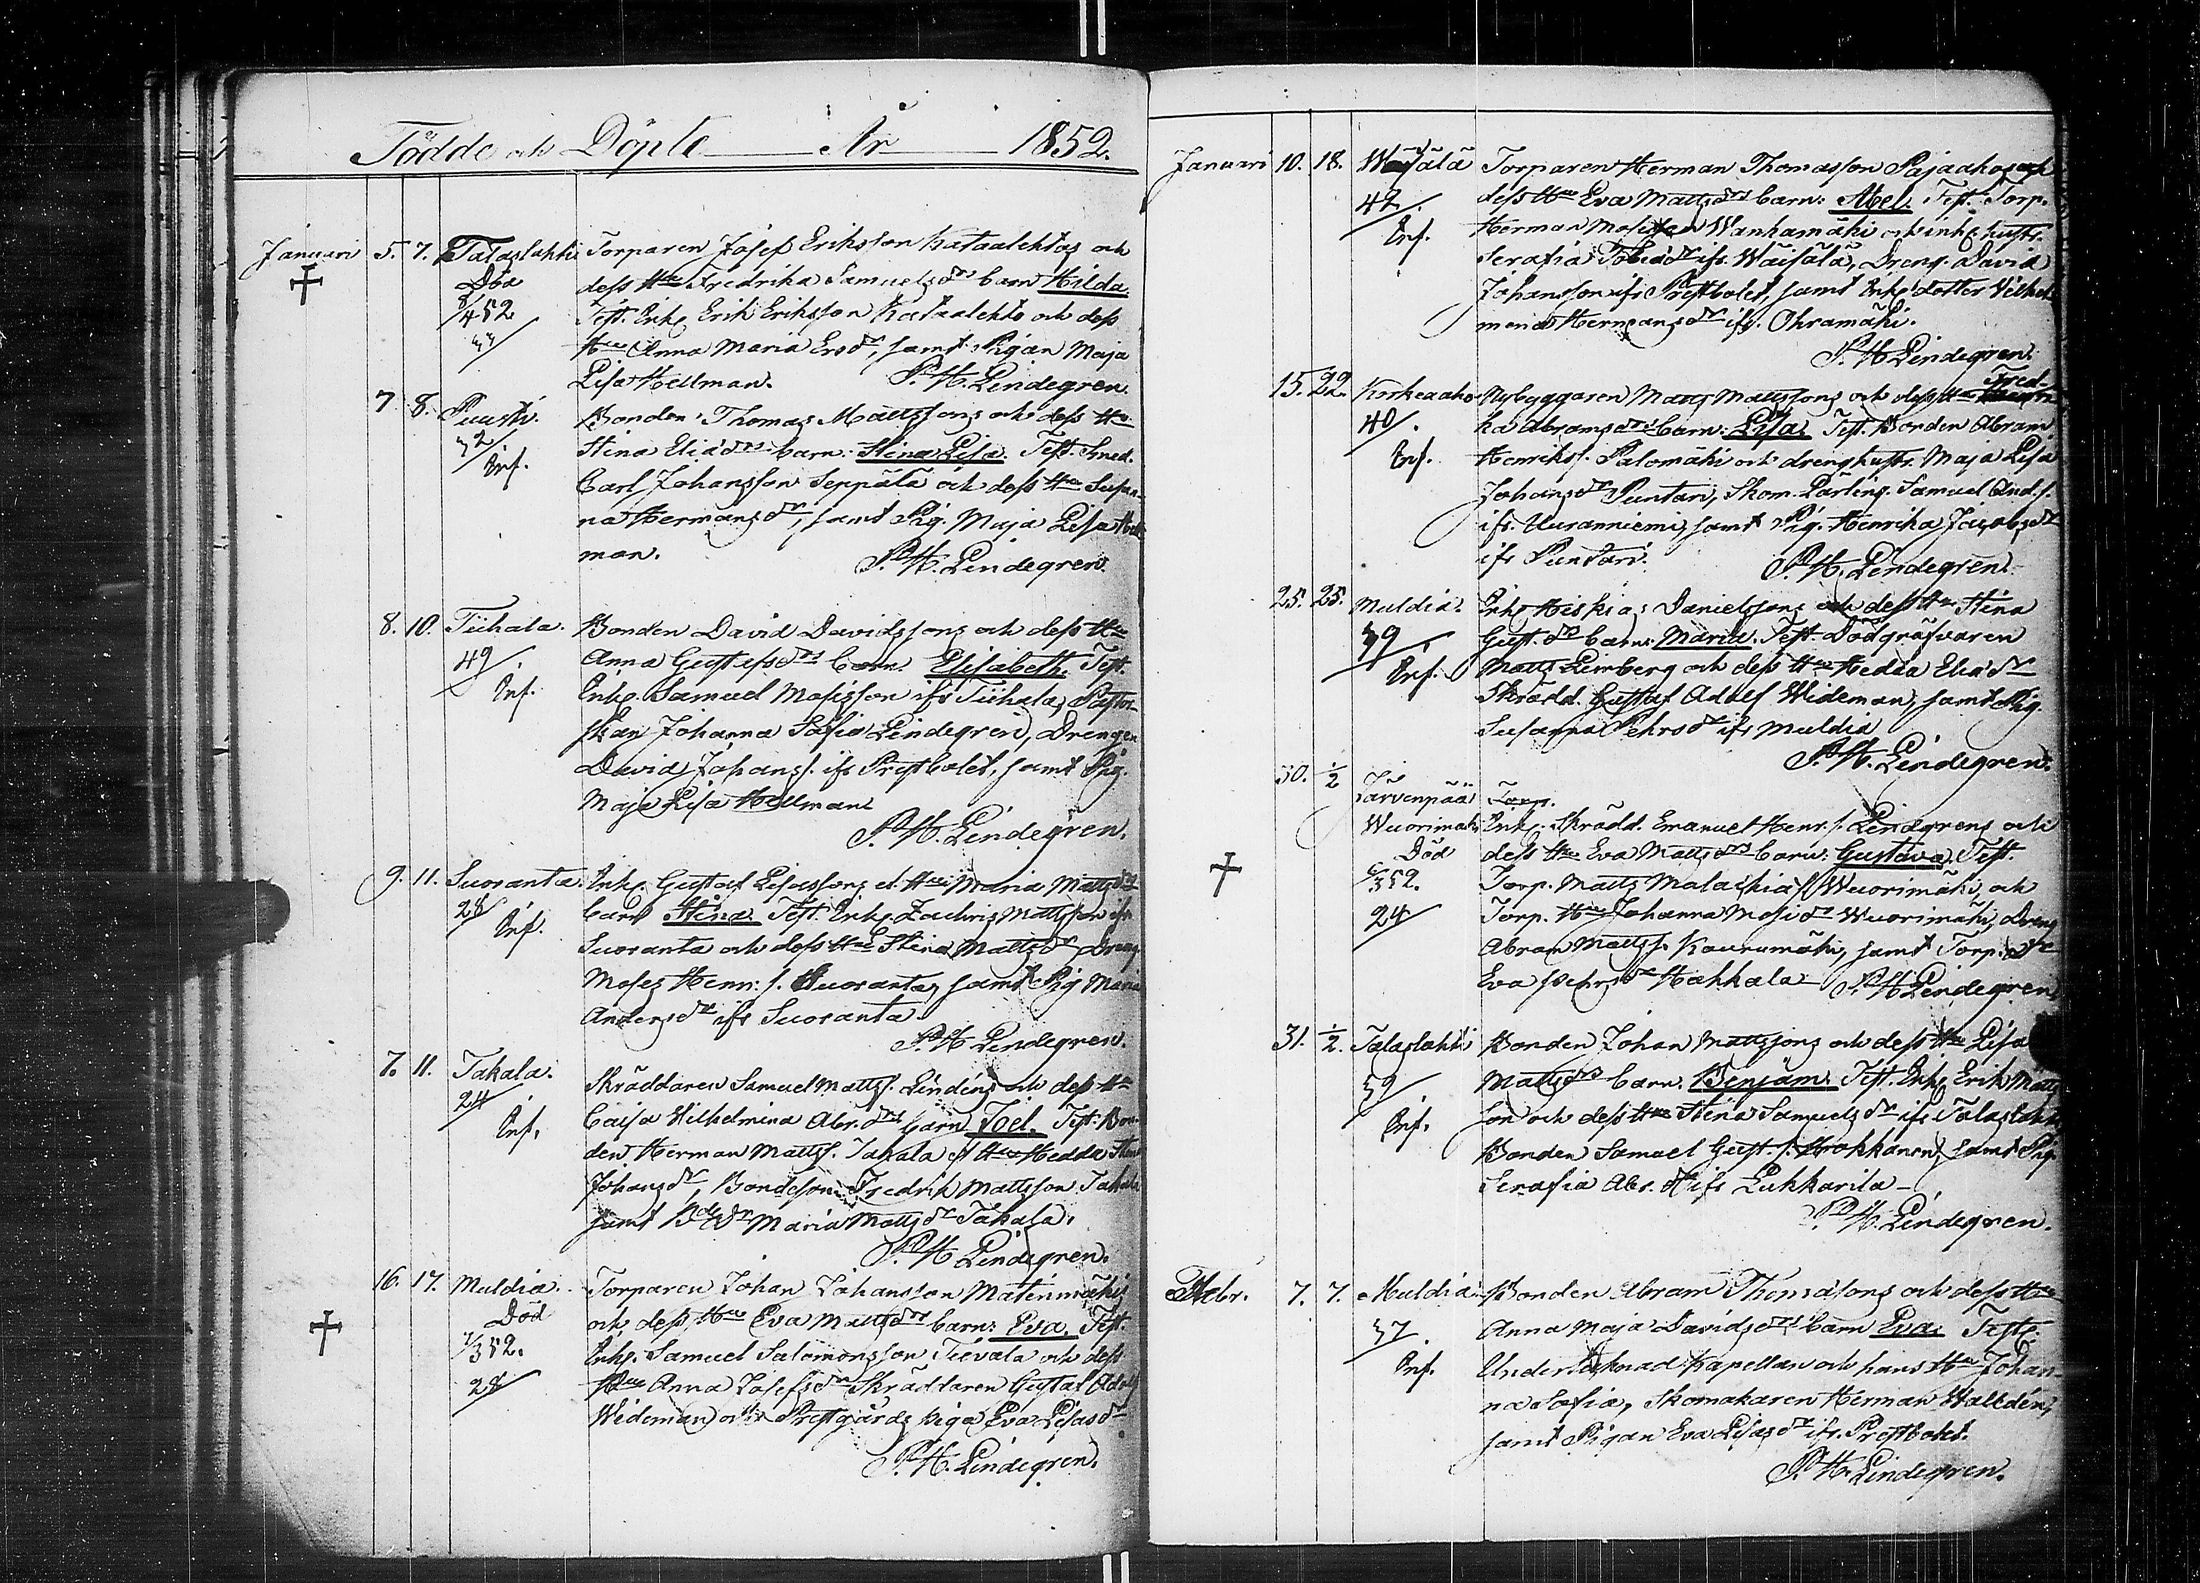 Födde och Döpte År 1852.
Januari 5. 7. Talaslahti Torparen Josef Eriksson Kataalehtos och
Död dess Hu Fredrika Samuelsdrs barn Hilda
8/4 52 Test. Inh. Erik Eriksson Kataalehto och dess
Hu Anna Maria Ersdr, samt Pigan Maja
Lisa Hellman. P. H. Lindegren.
7 8. Puusti. Bonden Thomas Mattssons och dess Hu
32/. Stina Eliædrs barn: Stina Lisa. Test. Smed.
Inf. Carl Johansson Seppälä och dess Hu Susan-
na Hermansdr, samt Pig. Maja Lisa Hell
man. P. H. Lindegren.
8. 10. Tiihala. Bonden David Davidssons och dess Hu
49/. Anna Gustafsdrs barn: Elisabeth. Test.
Inf. Inh. Samuel Mosisson ifr Tiihala, Pastor-
skan Johanna Sofia Lindegren, Drengen
David Johanss. ifr Prestbolet, samt Pig.
Maja Lisa Hellman
P. H. Lindegren.
9. 11. Suoranta. Inh. Gustaf Lisassons et Hu Maria Mattsdrs
28/ barn Stina. Test. Inh. Zachris Mattsson ifr
Inf. Suoranta och dess Hu Stina Mattsdr Dreng
Moses Henr. s. Suoranta, samt Pig Maria
Andersdr ifr Suoranta.
P. H. Lindegren.
7. 11. Takala. Skräddaren Samuel Mattss. Lindéns och dess Hu
24/ Caisa Wilhelmina Abr.drs barn Joel. Test. Bon-
Inf. den Herman Mattss. Takala et Hu Hedda Stina
Johansdr, Bondeson Fredrik Mattsson Takala
samt Bdedr Maria Mattsdr Takala.
P. H. Lindegren.
16. 17. Muldia. Torparen Johan Johansson Matinmäkis
Död och dess Hu Eva Mattsdrs barn: Eva. Test.
7/3 52. Inh. Samuel Salomonsson Teevala och dess
28/ Hu Anna Josefsdr Skräddaren Gustaf Adolf
Wideman och Prestgårds piga Eva Lisasdr
P. H. Lindegren.
Januari 10. 18. Wäisälä Torparen Herman Thomasson Pajaahos och
42/. dess Hu Eva Mattsdrs barn: Abel. Test. Torp.
Inf. Herman Mosisson Wanhamäki och inh. hustr.
Serafia Tobiædr ifr. Wäisälä, Dreng. David
Johansson ifr Prestbolet, samt Inh. dotter Vilhel
mina Hermansdr ifr. Ohramäki.
P. H. Lindegren.
15. 22. Korkeaaho Nybyggaren Matts Mattssons och dess Hu Fred-
40/. ka Abramsdrs barn: Lisa. Test. Bonden Abram
Inf. Henrikss. Palomäki och drenghustr. Maja Lisa
Johansdr Puntari, Skom. Lärling. Samuel And.s.
ifr. Uuranniemi, samt Pig. Henrika Jacobsdr
ifr Puntari. P. H. Lindegren.
25. 25. Muldia. Inh. Hiskias Danielssons och dess Hu Stina
39/. Gust.drs barn: Maria. Test. Dödgräfvaren
Inf. Matts Limberg och dess Hu Hedda Eliædr
Skrädd. Gustaf Adolf Wideman, samt Pig.
Susanna Pehrsdr ifr Muldia
P. H. Lindegren.
30. 1/2 Järvenpää Torp.
Wuorimäki Inh. Skrädd. Emanuel Henr. s. Lindgrens och
Död dess Hu Eva Mattsdrs barn: Gustava. Test.
6/3 52. Torp. Matts Malachiæ s. Wuorimäki, och
24/ Torp. Hu Johanna Mosisdr Wuorimäki, Dreng
Abram Mattss. Kaurumäki, samt Torp.
Eva Pehrsdr Hakkala P. H. Lindegren
31. 1/2. Talaslahti Bonden Johan Mattssons och dess Hu Lisa
39/ Mattsdrs barn: Benjam. Test. Inh. Erik Matts
Inf. son och dess Hu Stina Samuelsdr ifr Talaslahti
Bonden Samuel Gust. s. Hokkanen, samt Pig.
Serafia Abr. dr ifr Lukkarila
P. H. Lindegren.
Febr. 7. 7. Muldia Bonden Abram Thomassons och dess Hu
37. Anna Maja Davidsdrs barn Eva. Test.
Inf. Undertecknad Kapellan och hans Hu Johan-
na Sofia, Skomakaren Herman Walldén,
samt Pigan Eva Lisasdr ifr. Prestbolet.
P. H. Lindegren.